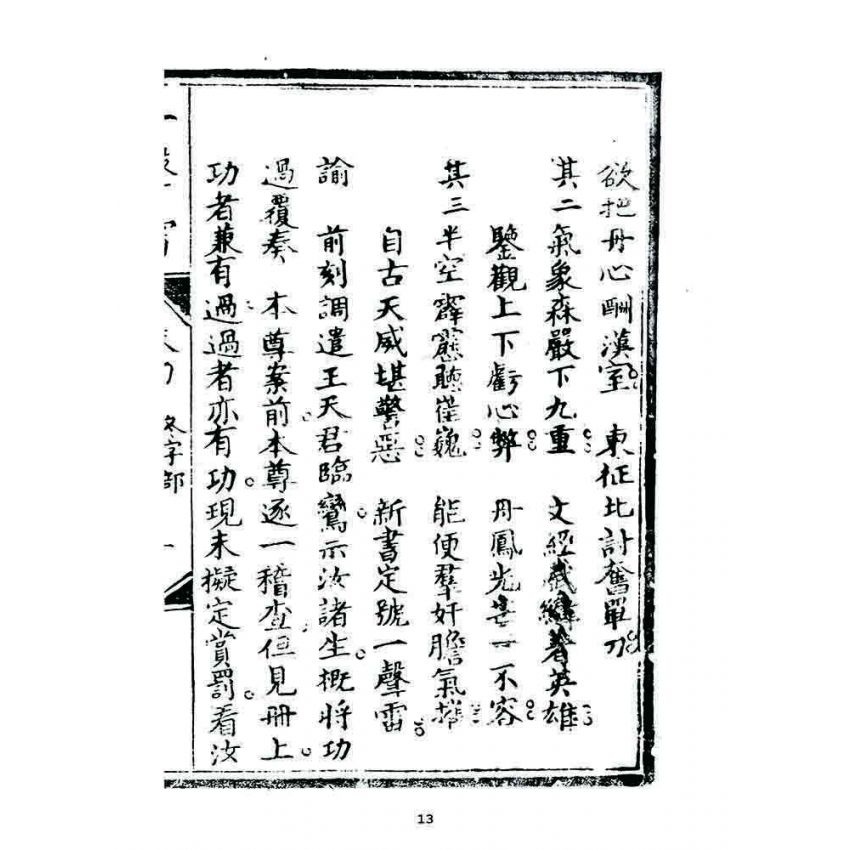 欲把丹心酬漢室。東征北討奮單刀。
其二氣象森嚴下九重。文經武緯著英雄。
鑒觀上下虧心弊。丹鳳光芒一不容。
其三半空霹靂聽崔巍。能使羣奸膽氣摧。
自古天威堪警惡。新書定號一聲雷。
諭　前刻調遣王天君臨鸞。示汝諸生。概將功
過覆奏　本尊案前。本尊逐一稽查。但見冊上。
功者兼有過。過者亦有功。現未擬定賞罰。看汝
冬字部
一
13